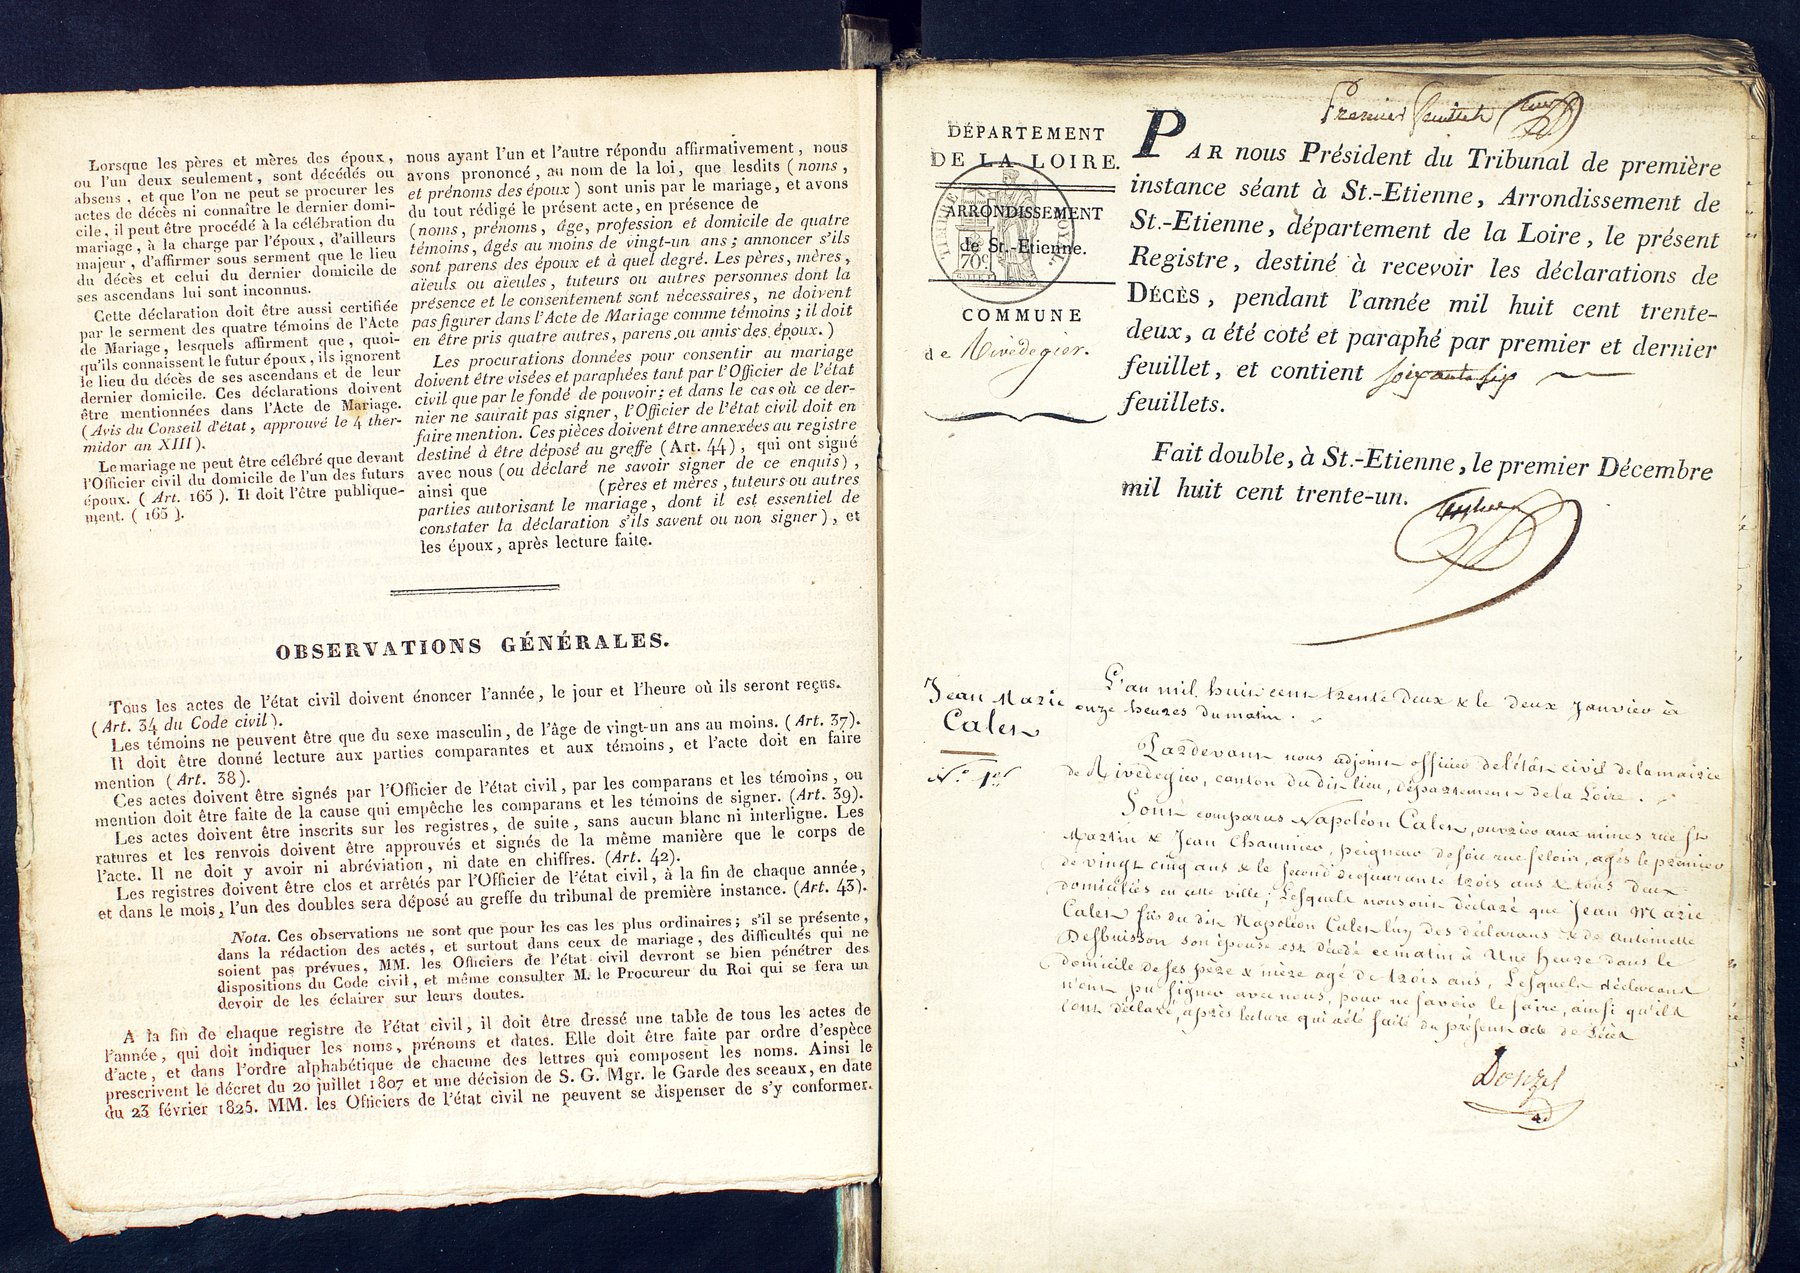 Lorsque les pères et mères des époux,
ou l'un deux seulement, sont décédés ou
absens, et que l'on ne peut se procurer les
actes de décès ni connaître le dernier domi-
cile, il peut être procédé à la célébration du
mariage, à la charge par l'époux, d'ailleurs
majeur, d'affirmer sous serment que le lieu
du décès et celui du dernier domicile de
ses ascendans lui sont inconnus.
Cette déclaration doit être aussi certifiée
par le serment des quatre témoins de l'Acte
de Mariage, lesquels affirment que, quoi-
qu'ils connaissent le futur époux, ils ignorent
le lieu du décès de ses ascendans et de leur
dernier domicile. Ces déclarations doivent
être mentionnées dans l'Acte de Mariage.
(Avis du Conseil d'état, approuvé le 4 ther-
midor an XIII).
Le mariage ne peut être célébré que devant
l'Officier civil du domicile de l'un des futurs
époux. (Art. 165). Il doit l'être publique-
ment. (165).
nous ayant l'un et l'autre répondu affirmativement, nous
avons prononcé, au nom de la loi, que lesdits (noms,
et prénoms des époux) sont unis par le mariage, et avons
du tout rédigé le présent acte, en présence de
(noms, prénoms, âge, profession et domicile de quatre
témoins, âgés au moins de vingt-un ans; annoncer s'ils
sont parens des époux et à quel degré. Les pères, mères,
aïeuls ou aïeules, tuteurs ou autres personnes dont la
présence et le consentement sont nécessaires, ne doivent
pas figurer dans l'Acte de Mariage comme témoins; il doit
en être pris quatre autres, parens ou amis des époux.)
Les procurations données pour consentir au mariage
doivent être visées et paraphées tant par l'Officier de l'état
civil que par le fondé de pouvoir; et dans le cas où ce der-
nier ne saurait pas signer, l'Officier de l'état civil doit en
faire mention. Ces pièces doivent être annexées au registre
destiné à être déposé au greffe (Art. 44), qui ont signé
avec nous (ou déclaré ne savoir signer de ce enquis),
ainsi que (pères et mères, tuteurs ou autres
parties autorisant le mariage, dont il est essentiel de
constater la déclaration s'ils savent ou non signer), et
les époux, après lecture faite.
OBSERVATIONS GÉNÉRALES.
Tous les actes de l'état civil doivent énoncer l'année, le jour et l'heure où ils seront reçus.
(Art. 34 du Code civil).
Les témoins ne peuvent être que du sexe masculin, de l'âge de vingt-un ans au moins. (Art. 37).
Il doit être donné lecture aux parties comparantes et aux témoins, et l'acte doit en faire
mention (Art. 38).
Ces actes doivent être signés par l'Officier de l'état civil, par les comparans et les témoins, ou
mention doit être faite de la cause qui empêche les comparans et les témoins de signer. (Art. 39).
Les actes doivent être inscrits sur les registres, de suite, sans aucun blanc ni interligne. Les
ratures et les renvois doivent être approuvés et signés de la même manière que le corps de
l'acte. Il ne doit y avoir ni abréviation, ni date en chiffres. (Art. 42).
Les registres doivent être clos et arrêtés par l'Officier de l'état civil, à la fin de chaque année,
et dans le mois, l'un des doubles sera déposé au greffe du tribunal de première instance. (Art. 43).
Nota. Ces observations ne sont que pour les cas les plus ordinaires; s'il se présente,
dans la rédaction des actes, et surtout dans ceux de mariage, des difficultés qui ne
soient pas prévues, MM. les Officiers de l'état civil devront se bien pénétrer des
dispositions du Code civil, et même consulter M. le Procureur du Roi qui se fera un
devoir de les éclairer sur leurs doutes.
A la fin de chaque registre de l'état civil, il doit être dressé une table de tous les actes de
l'année, qui doit indiquer les noms, prénoms et dates. Elle doit être faite par ordre d'espèce
d'acte, et dans l'ordre alphabétique de chacune des lettres qui composent les noms. Ainsi le
prescrivent le décret du 20 juillet 1807 et une décision de S. G. Mgr. le Garde des sceaux, en date
du 23 février 1825. MM. les Officiers de l'état civil ne peuvent se dispenser de s'y conformer.
Premier feuillet
DÉPARTEMENT
DE LA LOIRE.
ARRONDISSEMENT
de St.-Etienne.
70c
COMMUNE
de Rivedegier.
PAR nous Président du Tribunal de première
instance séant à St.-Etienne, Arrondissement de
St.-Etienne, département de la Loire, le présent
Registre, destiné à recevoir les déclarations de
DÉCÈS, pendant l'année mil huit cent trente-
deux, a été coté et paraphé par premier et dernier
feuillet, et contient soixante six
feuillets.
Fait double, à St.-Etienne, le premier Décembre
mil huit cent trente-un.
Jean Marie
Cales
N.o 1er
L'an mil huit cent trente deux & le deux janvier à
onze heures du matin.
Pardevant nous adjoint officier de l'état civil de la mairie
de Rivedegier, canton du dit lieu, département de la Loire.
Sont comparus Napoléon Cales, ouvrier aux mines rue St
Martin & Jean Chaumier, peigneur de soie rue feloin, agés le premier
de vingt cinq ans & le second de quarante trois ans & tous deux
domiciliés en cette ville; Lesquels nous ont déclaré que Jean Marie
Cales fils du dit Napoléon Cales l'un des déclarans & de antoinette
Desbuisson son épouse est décédé ce matin à Une heure dans le
domicile de ses père & mère agé de trois ans, Lesquels déclarans
n'ont pu signer avec nous, pour ne savoir le faire, ainsi qu'ils
l'ont déclaré, après lecture qui a été faite du présent acte de Décès
Donzel
ad